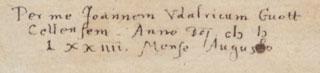 Per me Joannem Vdalricum Guott
Cellensem. Anno Dñj
Lxxiiij. Mense Augusto